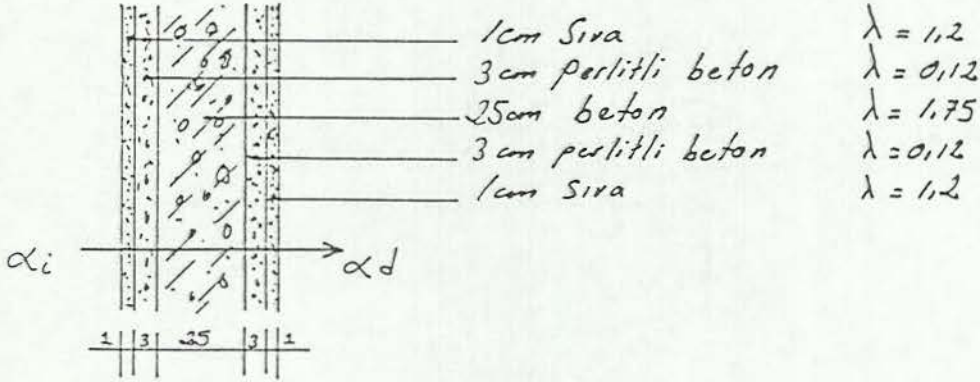 1cm Sıva λ = 1,2
3cm perlitli beton λ = 0,12
25cm beton λ = 1.75
3 cm perlitli beton λ = 0,12
1cm Sıva λ = 1,2
αi αd
1 3 25 3 1